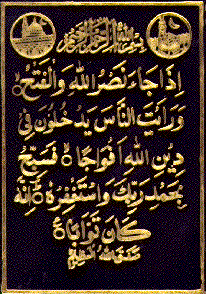 بسم الله الرحمن الرحيم
اذا جاء نصر الله والفتح
ورايت الناس يدخلون في
دين الله افواجا فسبح
بحمد ربك واستغفره انه
كان توابا
صدق الله العظيم